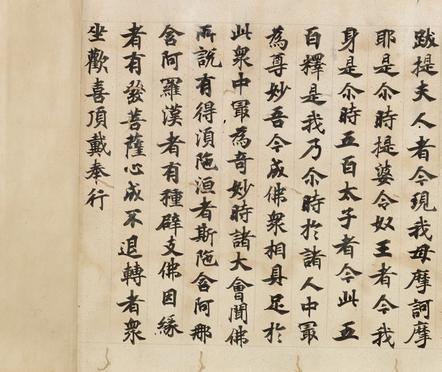 跋提夫人者今現我母摩訶摩
耶是尒時提婆令奴王者今我
身是尒時五百太子者今此五
百釋是我乃尒時於諸人中冣
為尊妙吾今成佛衆相具足於
此衆中冣為奇妙時諸大會聞佛
所說有得湏陁洹者斯陁含阿那
含阿羅漢者有種辟支佛因緣
者有發菩薩心成不退轉者衆
坐歡喜頂戴奉行